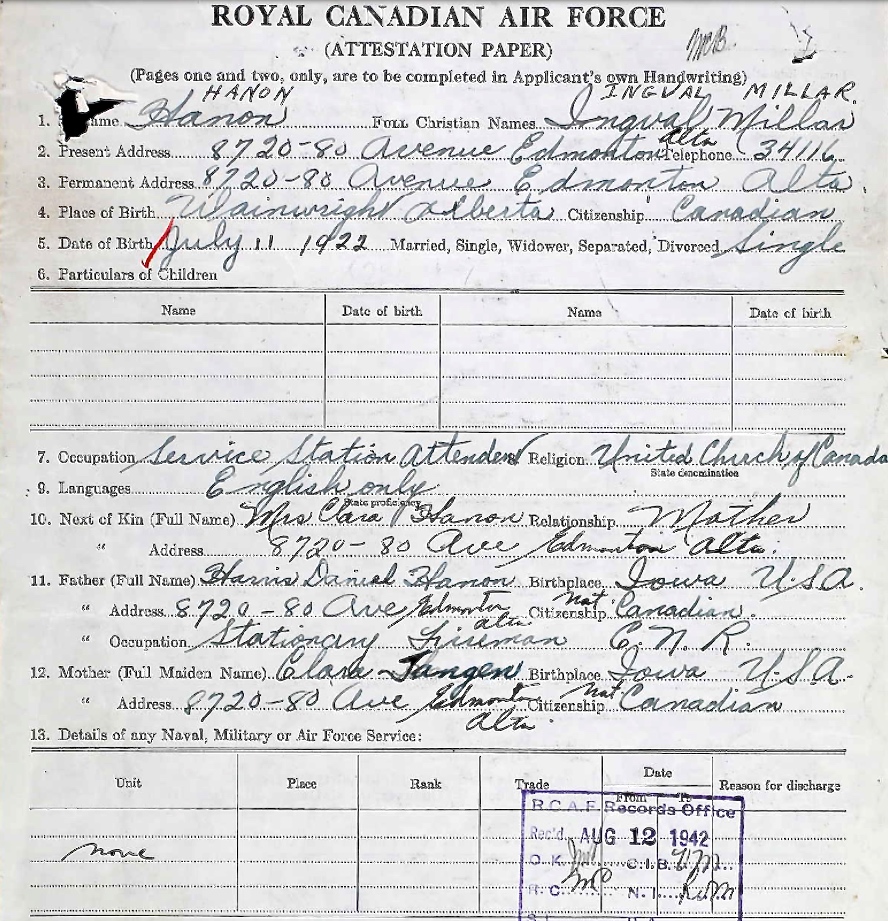 ROYAL CANADIAN AIR FORCE
(ATTESTATION PAPER)
(Pages one and two, only, are to be completed in Applicant's own Handwriting)
HANON INGVAL MILLAR.
1. ame Hanon Full Christian Names Ingval Millar
2. Present Address 8720-80 Avenue Edmonton Alta Telephone 34116
3. Permanent Address 8720-80 Avenue Edmonton Alta.
4. Place of Birth Wainwright Alberta Citizenship Canadian
5. Date of Birth July 11 1922 Married, Single, Widower, Separated, Divorced Single
6. Particulars of Children
Name Date of birth Name Date of birth
7. Occupation Service Station Attendent Religion United Church of Canada
State denomination
9. Languages English only
State proficiency
10. Next of Kin (Full Name) Mrs Clara Hanon Relationship Mother
" Address 8720-80 Ave Edmonton Alta.
11. Father (Full Name) Harris Daniel Hanon Birthplace Iowa U.S.A.
" Address 8720-80 Ave Edmonton Alta Citizenship Nat Canadian.
" Occupation Stationary Fireman C.N.R.
12. Mother (Full Maiden Name) Clara Tangen Birthplace Iowa U.S.A.
" Address 8720-80 Ave Edmonton Alta. Citizenship Nat Canadian
13. Details of any Naval, Military or Air Force Service:
Unit Place Rank Trade Date Reason for discharge
From To
R.C.A.F. Records Office
Rec'd. AUG 12 1942
none
O.K. C.I.B.
R.C. N.I.